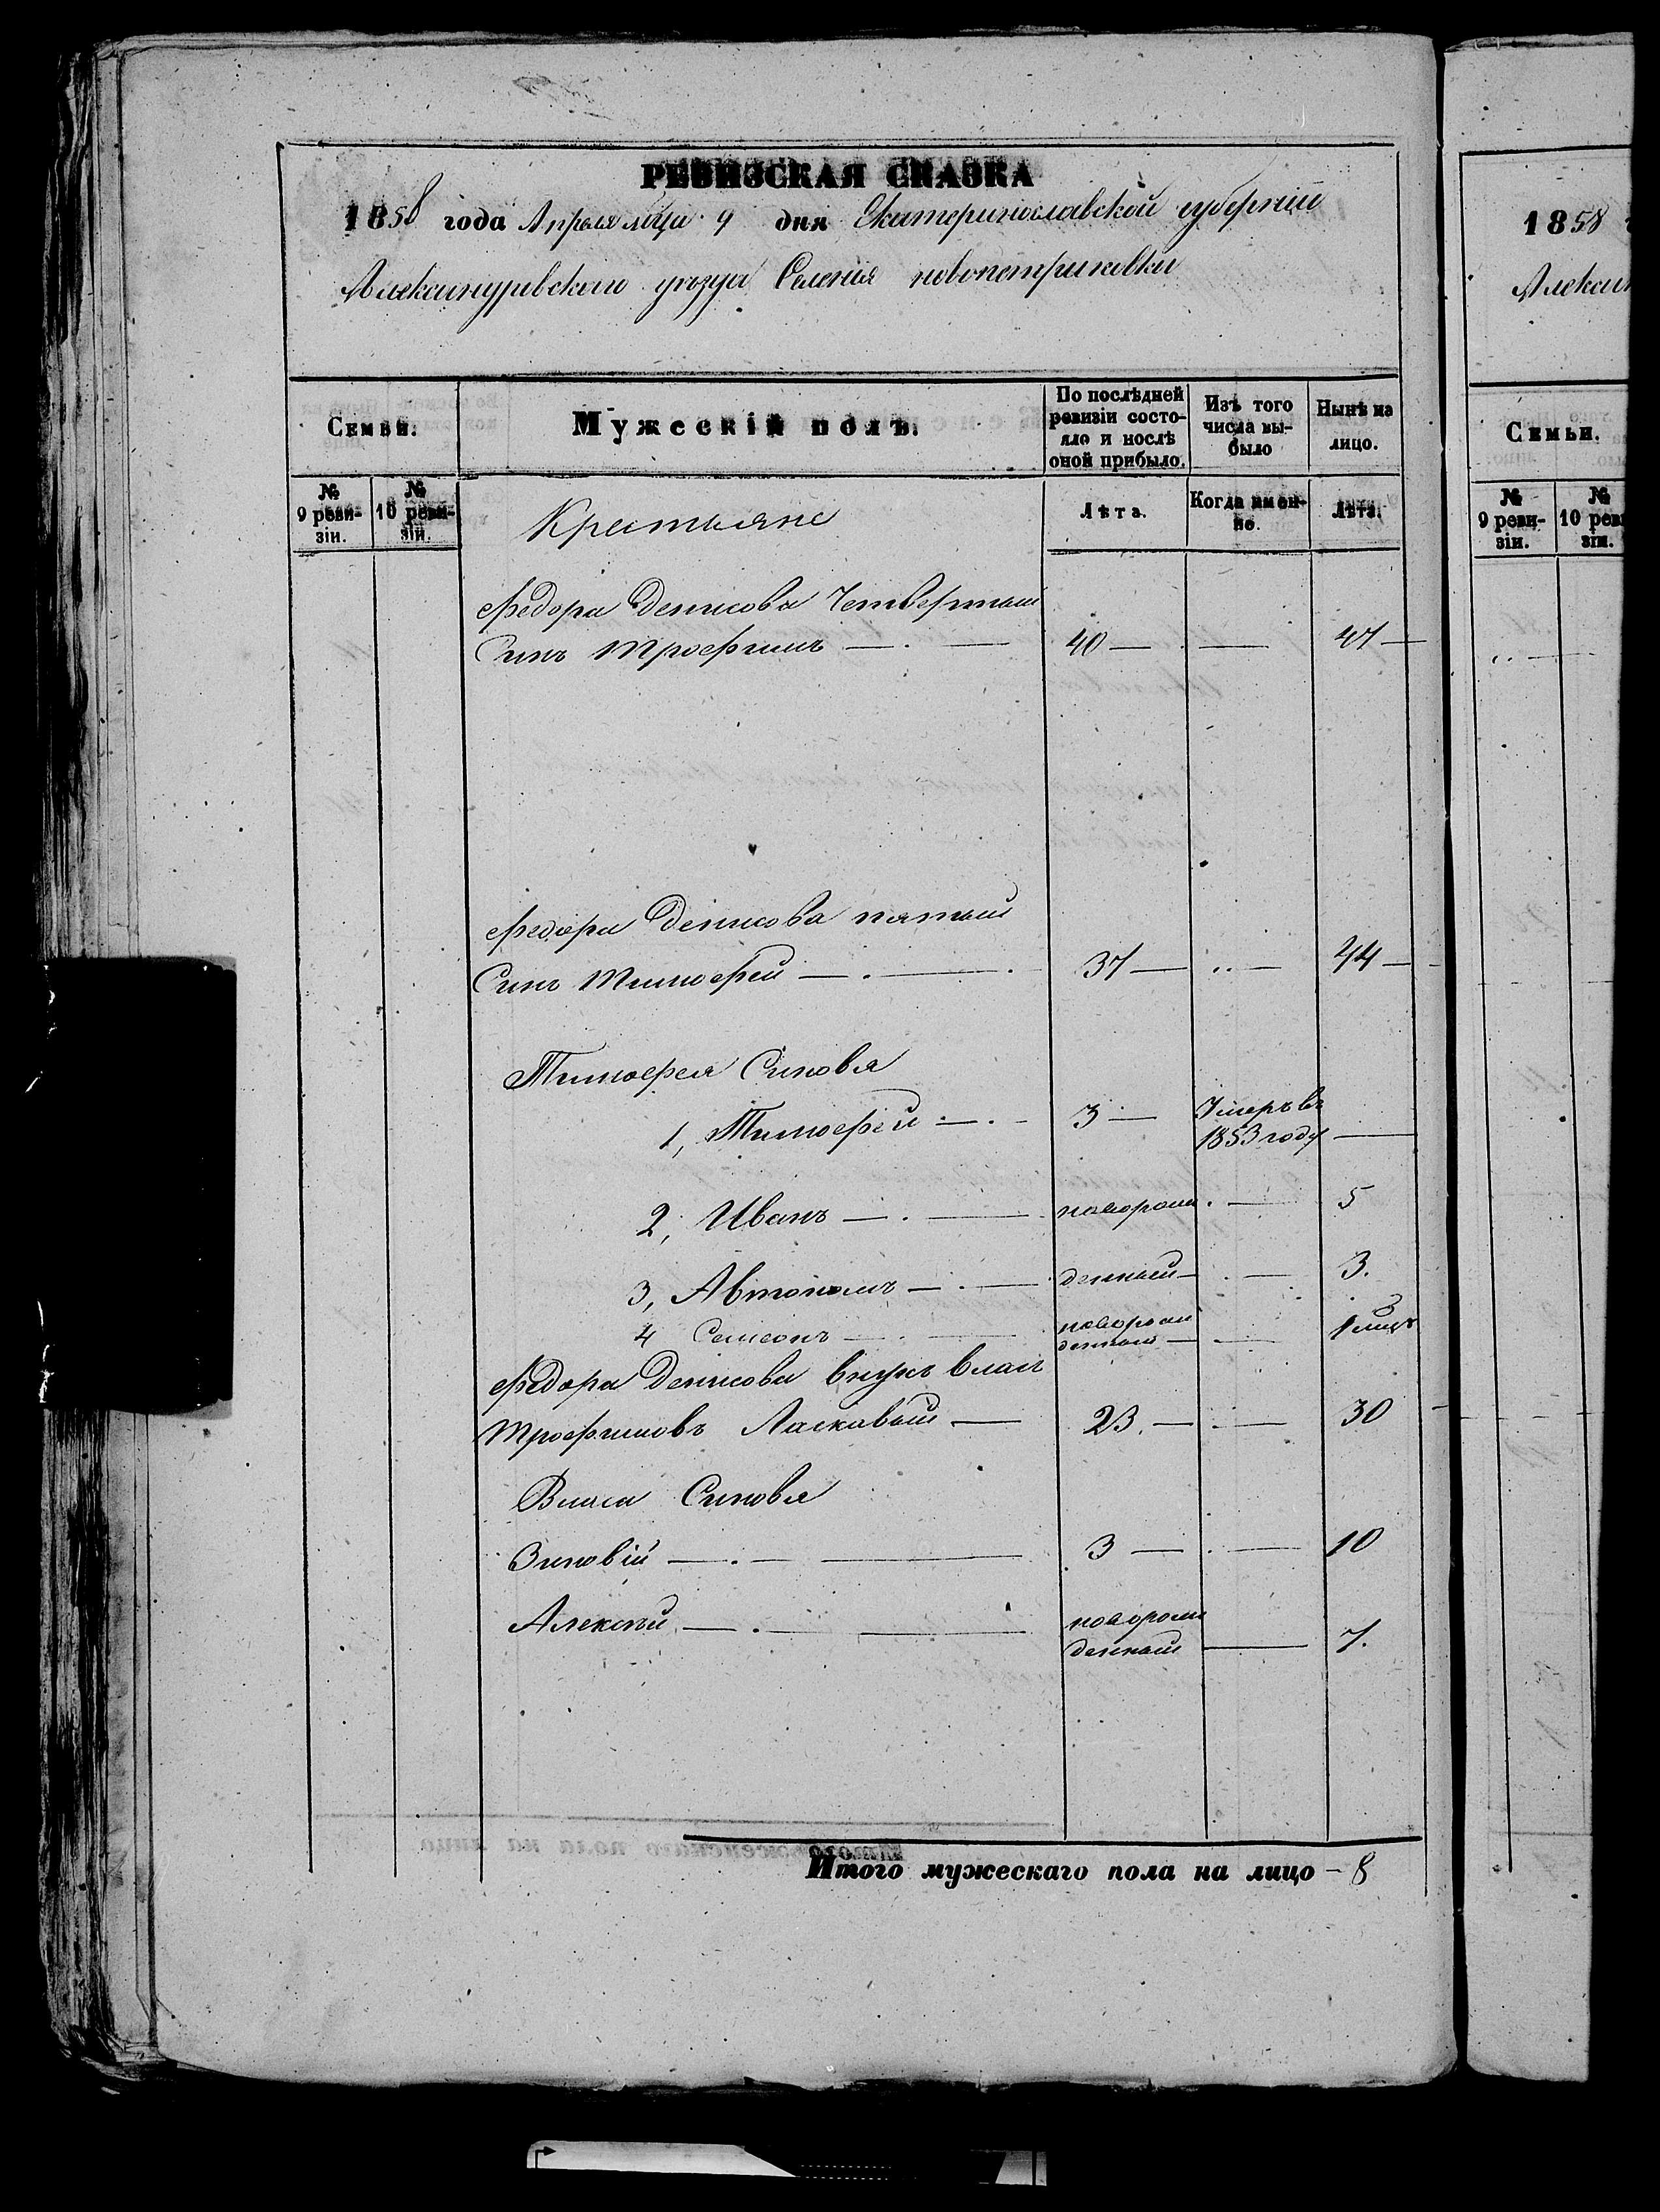 РЕВИЗСКАЯ СКАЗКА
1858 года Апреля мца 9 дня Екатеринославской губернии
Александровского уезда Селения новопетриковки
Семьи.
Мужескій полъ.
По послѣдней ревизіи состояло и послѣ оной прибыло.
Изъ того числа выбыло
Нынѣ на лицо.
№ 9 ревизіи.
№ 10 ревизіи.
Крестьяне
Лѣта.
Когда именно.
Лѣта.
Федора Денисова Четвертый
Синъ Трофимъ 40 47
Федора Денисова пятый
Синъ Тимофей 37 44
Тимофея Синовя
1, Тимофей 3 Умеръ въ 1853 году
2, Иванъ новорож 5
3, Автономъ денный 3.
4 Семеонъ новорож денный
Федора Денисова внукъ Влас
Трофимовъ Ласкавый 23. 30
Власа Синовя
Зиновій 3 10
Алексѣй новорож денный 7.
Итого мужескаго пола на лицо 8
1858
Алексан
Семьи.
№ 9 ревизіи.
№ 10 реви
зіи.